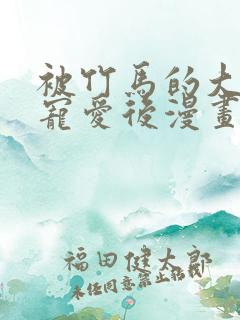 被竹馬的大
寵愛後漫畫
福田健太郎
未任同意禁止括載